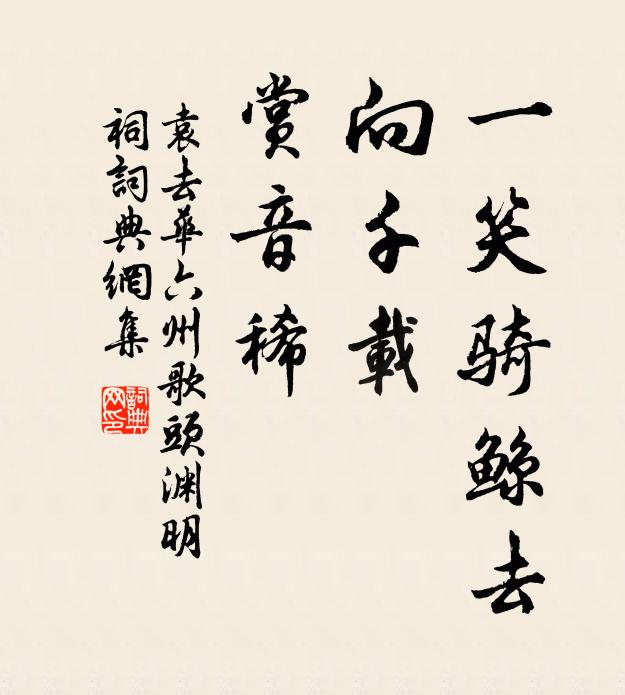 一笑骑鲸去
向千載
赏音稀
袁去華六州歌頭渊明
祠詞典網集
詞典网印